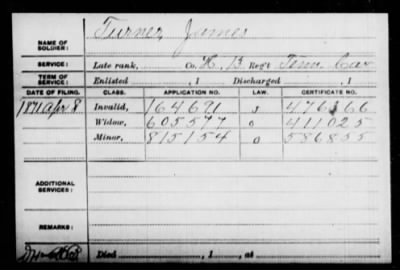 NAME OF SOLDIER: Turner, James
SERVICE: Late rank, Co. H, 13 Reg't Tenn Cav
TERM OF SERVICE: Enlisted , 1 Discharged , 1
DATE OF FILING. CLASS. APPLICATION NO. LAW. CERTIFICATE NO.
1871 Apr 8 Invalid, 164671 476366
Widow, 605577 411025
Minor, 815154 586855
ADDITIONAL SERVICES:
REMARKS:
Died , 1 , at